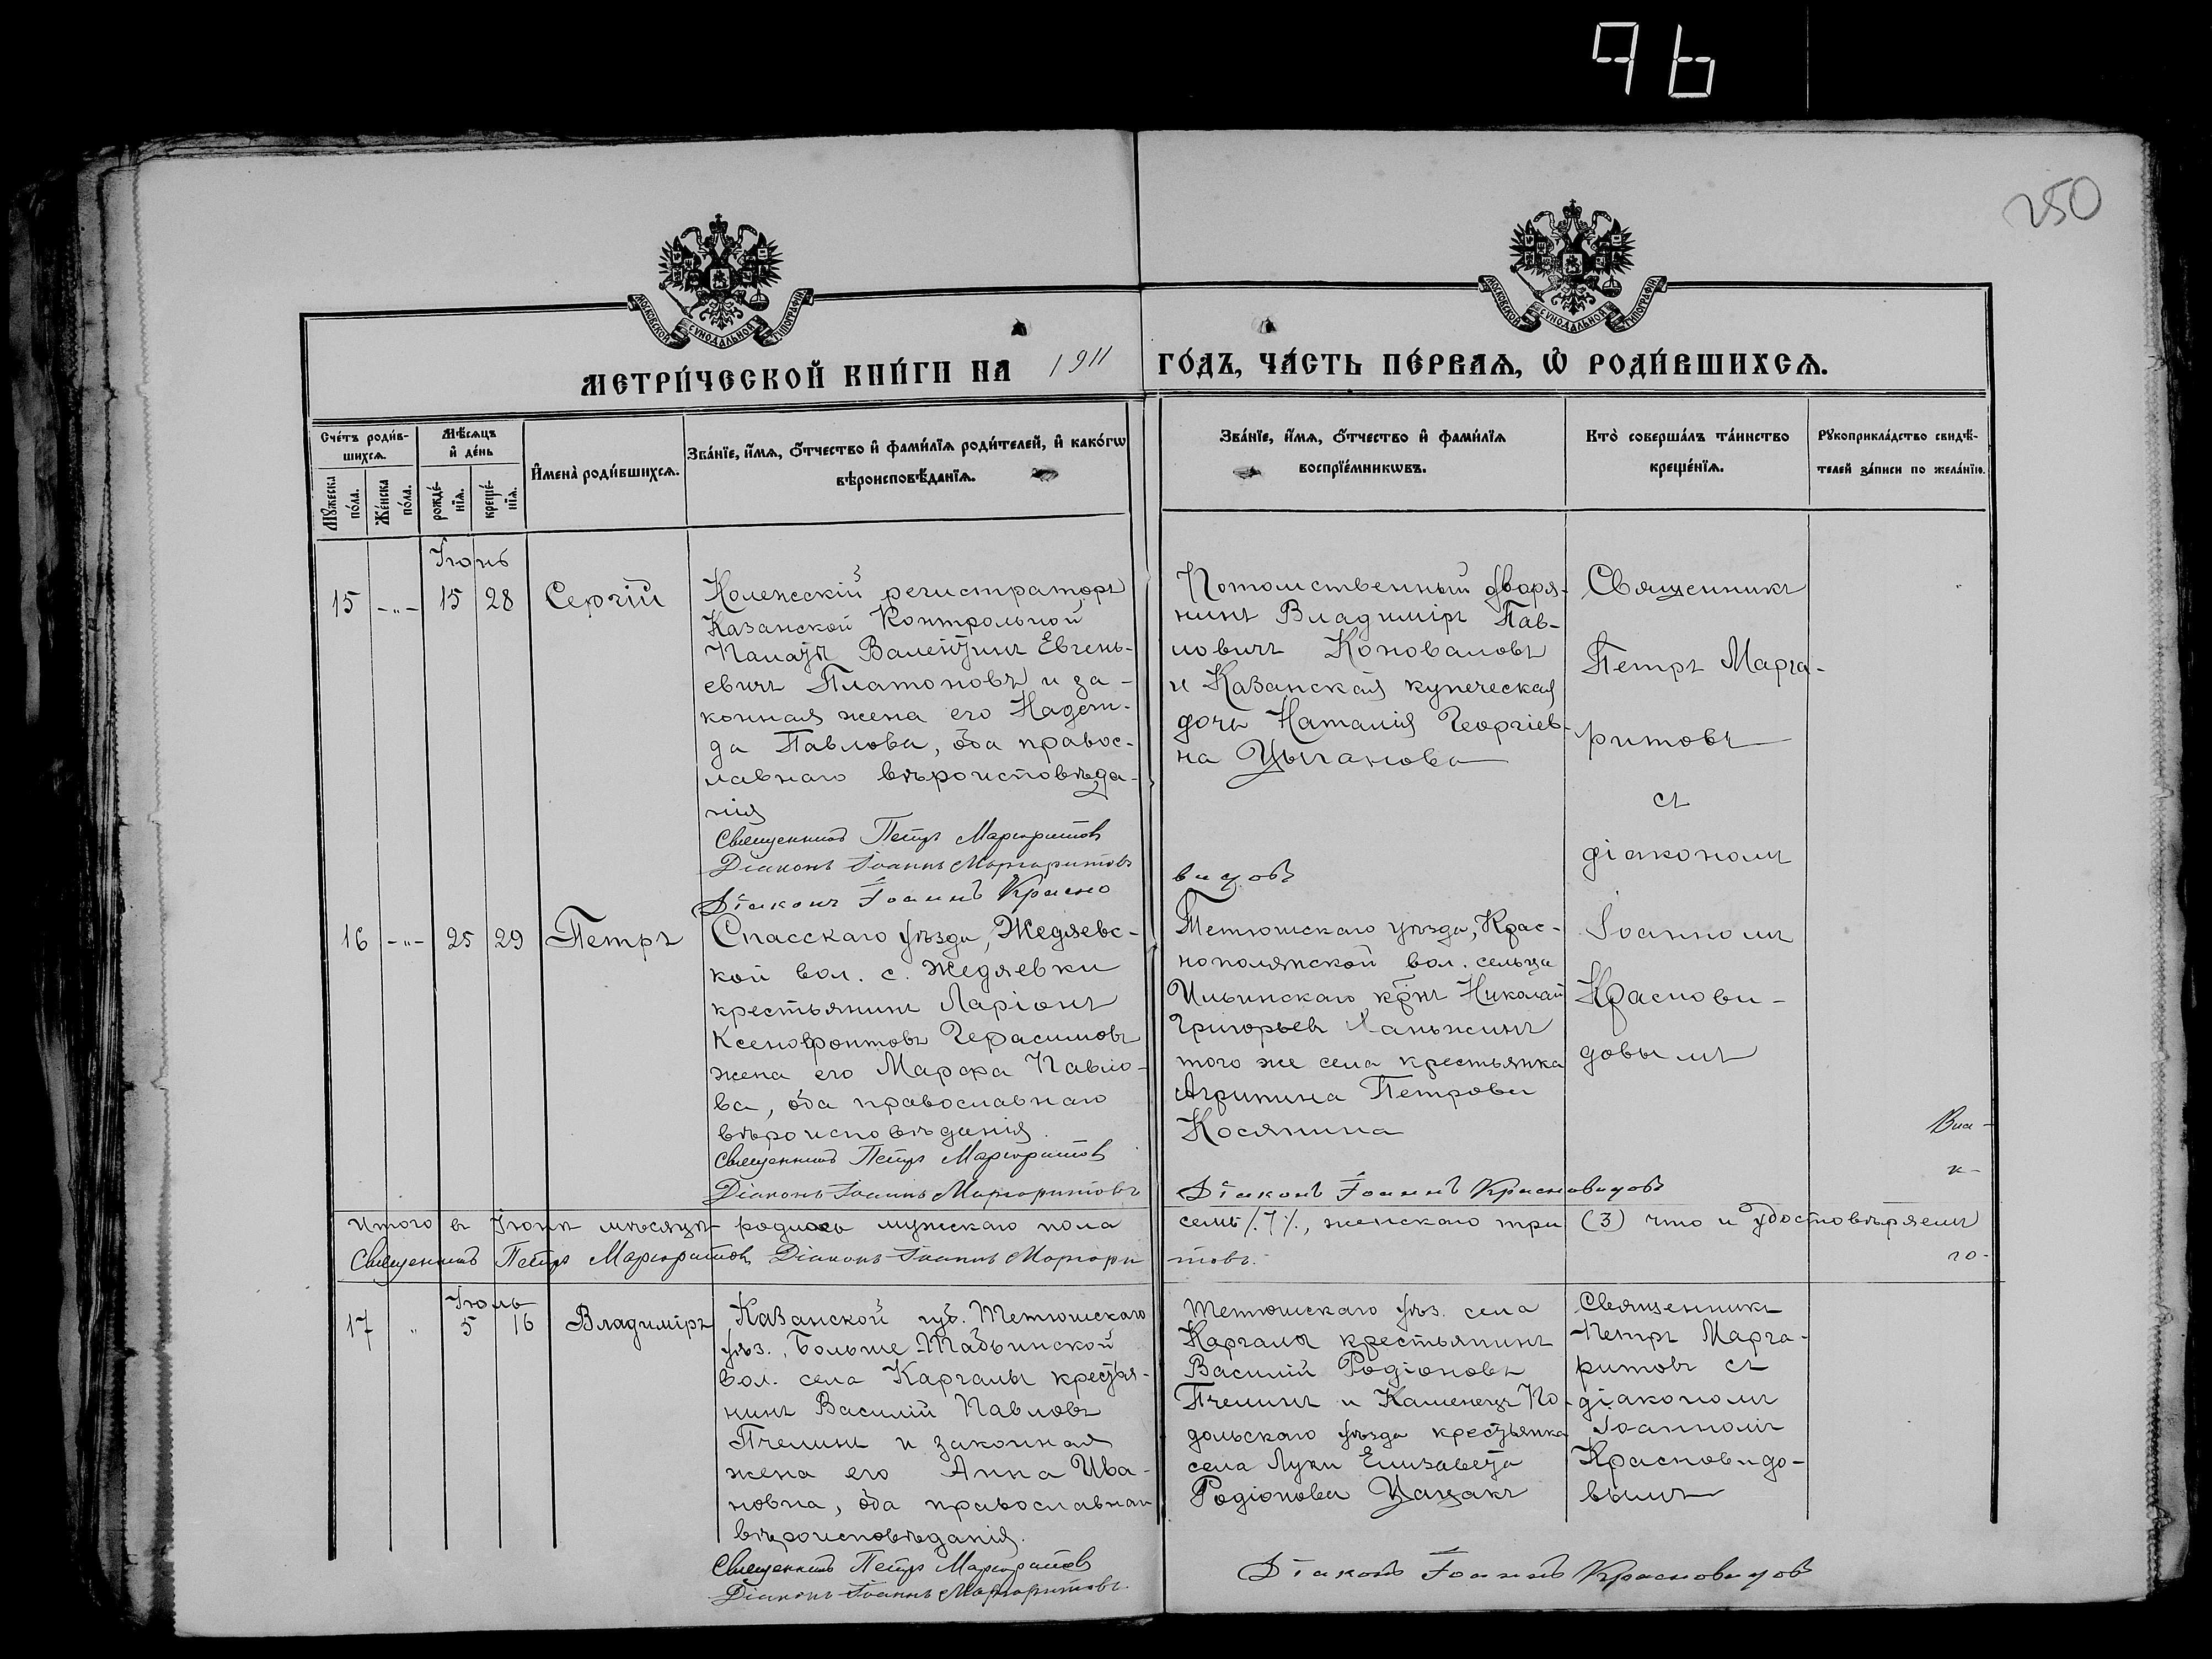 96
250
МОСКОВСКОЙ СУНОДАЛЬНОЙ ТИПОГРАФІИ
МОСКОВСКОЙ СУНОДАЛЬНОЙ ТИПОГРАФІИ
МЕТРИ́ЧЕСКОЙ КНИ́ГИ НА 1911 ГО́ДЪ, ЧА́СТЬ ПЕ́РВАѦ, Ѡ҆ РОДИ́ВШИХСѦ.
Сче́тъ роди́в-
шихсѧ.
Мꙋ́жеска по́ла.
Же́нска по́ла.
Мѣ́сѧцъ
и҆ де́нь
рожде́-
нїѧ.
креще́-
нїѧ.
И҆мена̀ роди́вшихсѧ.
Зва́нїе, и҆́мѧ, ѻ҆́тчество и҆ фами́лїѧ роди́телей, и҆ како́гѡ
вѣроисповѣ́данїѧ.
Зва́нїе, и҆́мѧ, ѻ҆́тчество и҆ фами́лїѧ
воспрїе́мникѡвъ.
Кто̀ соверша́лъ та́инство
креще́нїѧ.
Рꙋкоприкла́дство свидѣ́-
телей за́писи по жела́нїю.
Іюнь
15 -"- 15 28 Сергій
Колежскій регистраторъ
Казанской Контрольной
Палаты Валентинъ Евгень-
евичъ Платоновъ и за-
конная жена его Надеж-
да Павлова, оба правос-
лавнаго вѣроисповѣда-
нія
Священникъ Петръ Маргаритовъ
Діаконъ Іоаннъ Маргаритовъ
Діаконъ Іоаннъ Красно
Потомственный дворя-
нинъ Владиміръ Пав-
ловичъ Коноваловъ
и Казанская купеческая
дочь Наталія Георгіев-
на Цыганова
видовъ
Священникъ
Петръ Марга-
ритовъ
съ
діакономъ
Іоанномъ
Краснови-
довымъ
16 -"- 25 29 Петръ
Спасскаго уѣзда, Жедяевс-
кой вол. с. Жедяевки
крестьянинъ Ларіонъ
Ксенофонтовъ Герасимовъ
жена его Марфа Павло-
ва, оба православнаго
вѣроисповѣданія.
Священникъ Петръ Маргаритовъ
Діаконъ Іоаннъ Маргаритовъ
Тетюшскаго уѣзда, Крас-
нополянской вол. сельца
Ильинскаго кр̃нъ Николай
Григорьевъ
того же села крестьянка
Агрипина Петрова
Косянина
Діаконъ Іоаннъ Красновидовъ
Итого въ Іюнѣ мѣсяцѣ родилось мужскаго пола семь /7/, женскаго три (3) что и удостовѣряемъ
Священникъ Петръ Маргаритовъ Діаконъ Іоаннъ Маргари
товъ.
го-
Іюль
17 " 5 16 Владиміръ
Казанской губ. Тетюшскаго
уѣз., Больше-Тябынской
вол. села Каргалы крестья-
нинъ Василій Павловъ
Пчелинъ и законная
жена его Анна Ива-
новна, оба православнаг
вѣроисповѣданія.
Священникъ Петръ Маргаритовъ
Діаконъ Іоаннъ Маргаритовъ.
Тетюшскаго уѣз. села
Каргалы крестьянинъ
Василій Родіоновъ
Пчелинъ и Каменецъ По-
дольскаго уѣзда крестьянка
села Луки Елизавета
Родіонова
Священникъ
Петръ Марга-
ритовъ съ
діакономъ
Іоанномъ
Красновидо-
вымъ
Діаконъ Іоаннъ Красновидовъ